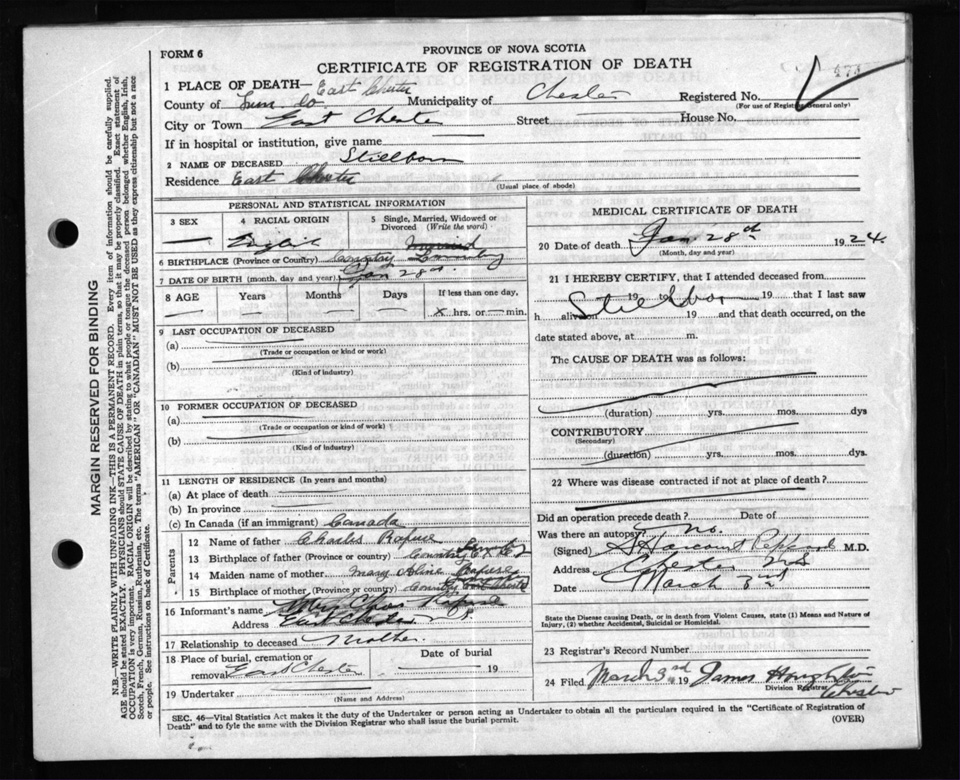 FORM 6
PROVINCE OF NOVA SCOTIA
CERTIFICATE OF REGISTRATION OF DEATH
1 PLACE OF DEATH— East Chester
County of Lun. Co. Municipality of Chester Registered No.
(For use of Registrar General only)
City or Town East Chester Street House No.
If in hospital or institution, give name
2 NAME OF DECEASED Stillborn
Residence East Chester
(Usual place of abode)
PERSONAL AND STATISTICAL INFORMATION
3 SEX 4 RACIAL ORIGIN 5 Single, Married, Widowed or Divorced (Write the word)
English
6 BIRTHPLACE (Province or Country) Country
7 DATE OF BIRTH (month, day and year) Jan 28th
8 AGE Years Months Days If less than one day,
x hrs. or min.
9 LAST OCCUPATION OF DECEASED
(a)
(Trade or occupation or kind or work)
(b)
(Kind of industry)
10 FORMER OCCUPATION OF DECEASED
(a)
(Trade or occupation or kind of work)
(b)
(Kind of Industry)
11 LENGTH OF RESIDENCE (In years and months)
(a) At place of death
(b) In province
(c) In Canada (if an immigrant) Canada
Parents
12 Name of father Charles Rafuse
13 Birthplace of father (Province or country) Country
14 Maiden name of mother Mary Rafuse
15 Birthplace of mother (Province or country) Country
16 Informant's name Mrs Chas Rafuse
Address East Chester N.S.
17 Relationship to deceased Mother.
18 Place of burial, cremation or removal East Chester Date of burial 19
19 Undertaker
(Name and Address)
MEDICAL CERTIFICATE OF DEATH
20 Date of death Jan 28th 1924.
(Month, day and year)
21 I HEREBY CERTIFY, that I attended deceased from
Stillborn 19 19 that I last saw
h alive on 19 and that death occurred, on the
date stated above, at m.
The CAUSE OF DEATH was as follows:
(duration) yrs. mos. dys
CONTRIBUTORY
(Secondary)
(duration) yrs. mos. dys.
22 Where was disease contracted if not at place of death?
Did an operation precede death? Date of
Was there an autopsy? no.
(Signed) S Harcourt M.D.
Address Chester N.S.
Date March 3rd
State the Disease causing death, or in death from Violent Causes, state (1) Means and Nature of Injury, (2) whether Accidental, Suicidal or Homicidal.
23 Registrar's Record Number
24 Filed March 3rd 19 James
Division Registrar Chester
SEC. 46—Vital Statistics Act makes it the duty of the Undertaker or person acting as Undertaker to obtain all the particulars required in the "Certificate of Registration of
Death" and to fyle the same with the Division Registrar who shall issue the burial permit.
(OVER)
MARGIN RESERVED FOR BINDING
N.B.—WRITE PLAINLY WITH UNFADING INK—THIS IS A PERMANENT RECORD. Every item of information should be carefully supplied.
AGE should be stated EXACTLY. PHYSICIANS should STATE CAUSE OF DEATH in plain terms, so that it may be properly classified. Exact statement of
OCCUPATION is very important. RACIAL ORIGIN will be described by stating to what people or tongue the deceased person belonged whether English, Irish,
Scotch, French, German, Russian, Ruthenian, etc. The terms "AMERICAN" OR "CANADIAN" MUST NOT BE USED as they express citizenship but not a race
or people. See instructions on back of Certificate.